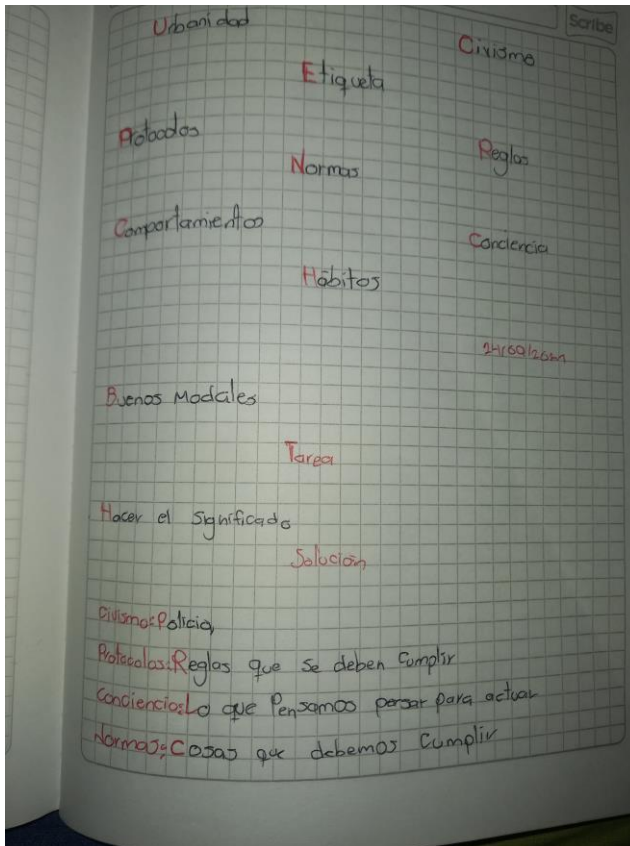 Scribe
Urbanidad
Civismo
Etiqueta
Reglas
Normas
Comportamientos
Conciencia
Hábitos
Buenos Modales
Tarea
Hacer el significado
Solución
Civismo: Policia,
Protocolos: Reglas que se deben cumplir
Conciencia: Lo que Pensamos pensar para actuar
Normas: Cosas que debemos Cumplir